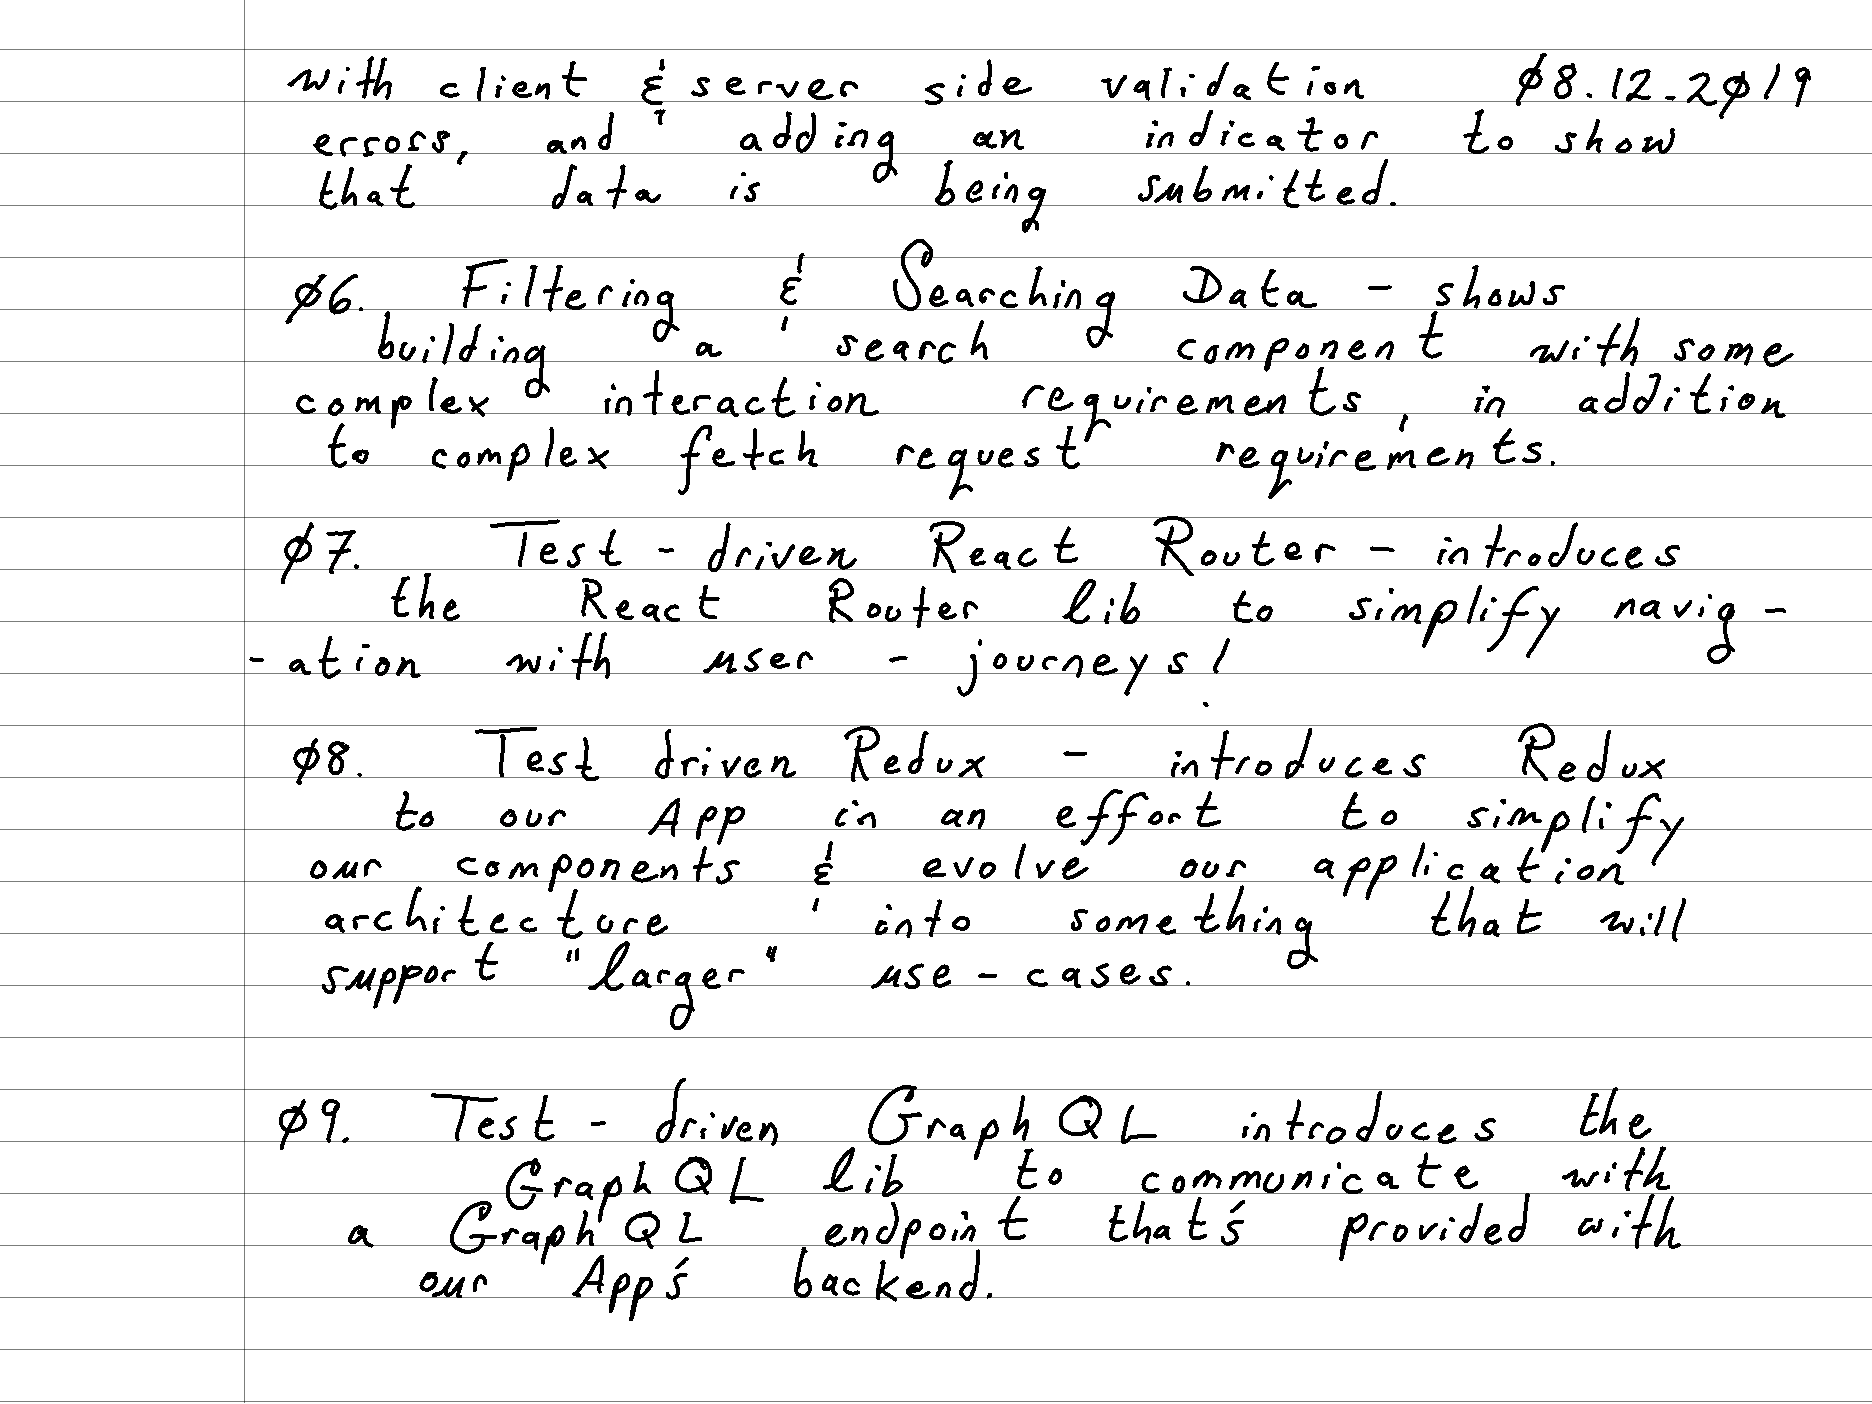 with client & server side validation Ø8.12.2Ø19
errors, and adding an indicator to show
that data is being submitted.
Ø6. Filtering & Searching Data - shows
building a search component with some
complex interaction requirements, in addition
to complex fetch request requirements.
Ø7. Test - driven React Router - introduces
the React Router lib to simplify navig -
- ation with user - journeys!
Ø8. Test driven Redux - introduces Redux
to our App in an effort to simplify
our components & evolve our application
architecture into something that will
support "larger" use - cases.
Ø9. Test - driven GraphQL introduces the
GraphQL lib to communicate with
a GraphQL endpoint that's provided with
our App's backend.